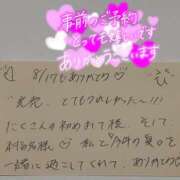 事前のご予約
とっても嬉しいです
ありがとうございます
8/17もありがとう♡
とてもうれしかったー!!!
たくさんの初めまして様、そして
私と今年の夏を
一緒に過ごしてくれて、ありがとう